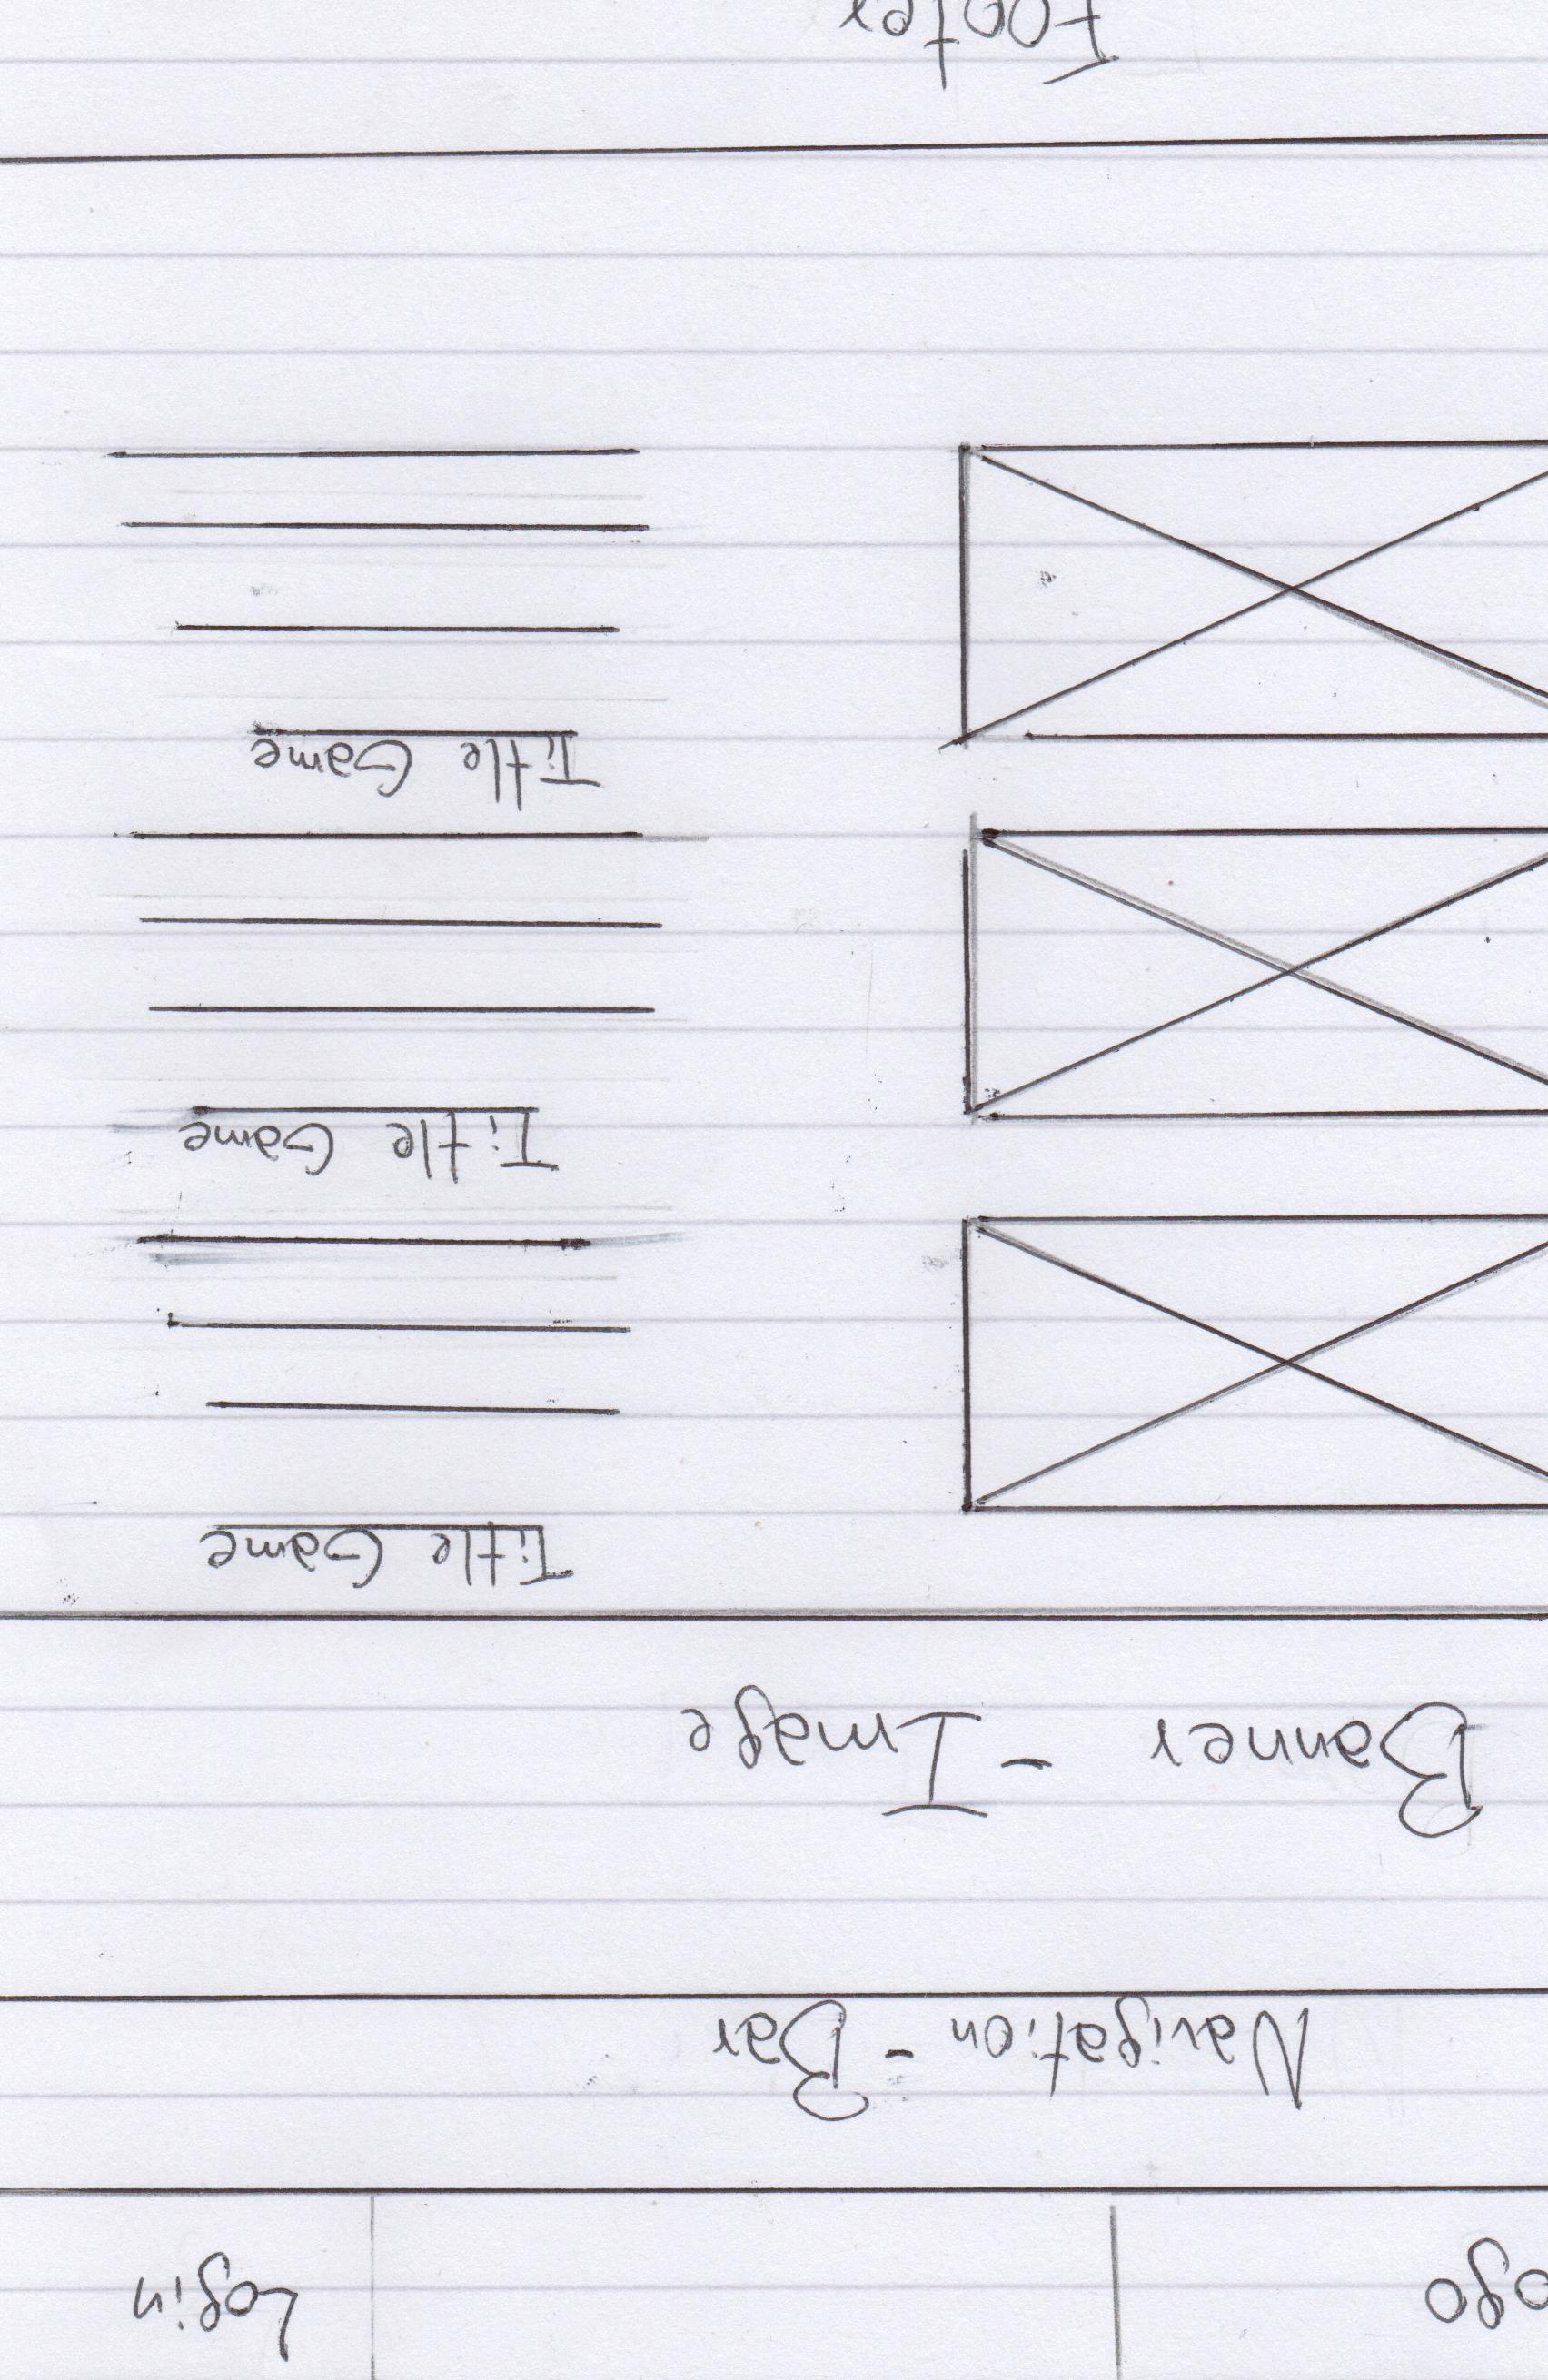 ogo Login
Navigation - Bar
Banner - Image
Title Game
Title Game
Title Game
Footer